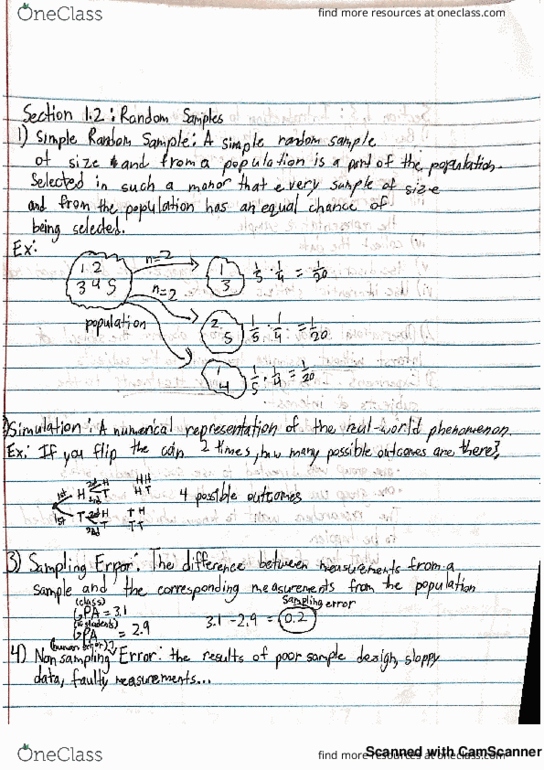 OneClass
find more resources at oneclass.com
Section 1.2: Random Samples
1) Simple Random Sample: A simple random sample
of size and from a population is a part of the population
Selected in such a manor that every sample of size
and from the population has an equal chance of
being selected.
Ex:
1 2
3 4 5
population
n=2
n=2
1
3
1/5 · 1/4 = 1/20
2
5
1/5 · 1/4 = 1/20
1
4
1/5 · 1/4 = 1/20
Simulation: A numerical representation of the real-world phenomenon.
Ex: If you flip the coin 2 times, how many possible outcomes are there?
1st H 2nd H HH
2nd T HT
4 possible outcomes
1st T 2nd H TH
2nd T TT
3) Sampling Error: The difference between measurements from a
sample and the corresponding measurements from the population
(class)
GPA = 3.1
GPA = 2.9
Sampling error
3.1 - 2.9 = 0.2
4) Non sampling Error: the results of poor sample dezign, sloppy
data, faulty measurements...
OneClass
find more resources at oneclass.com
Scanned with CamScanner